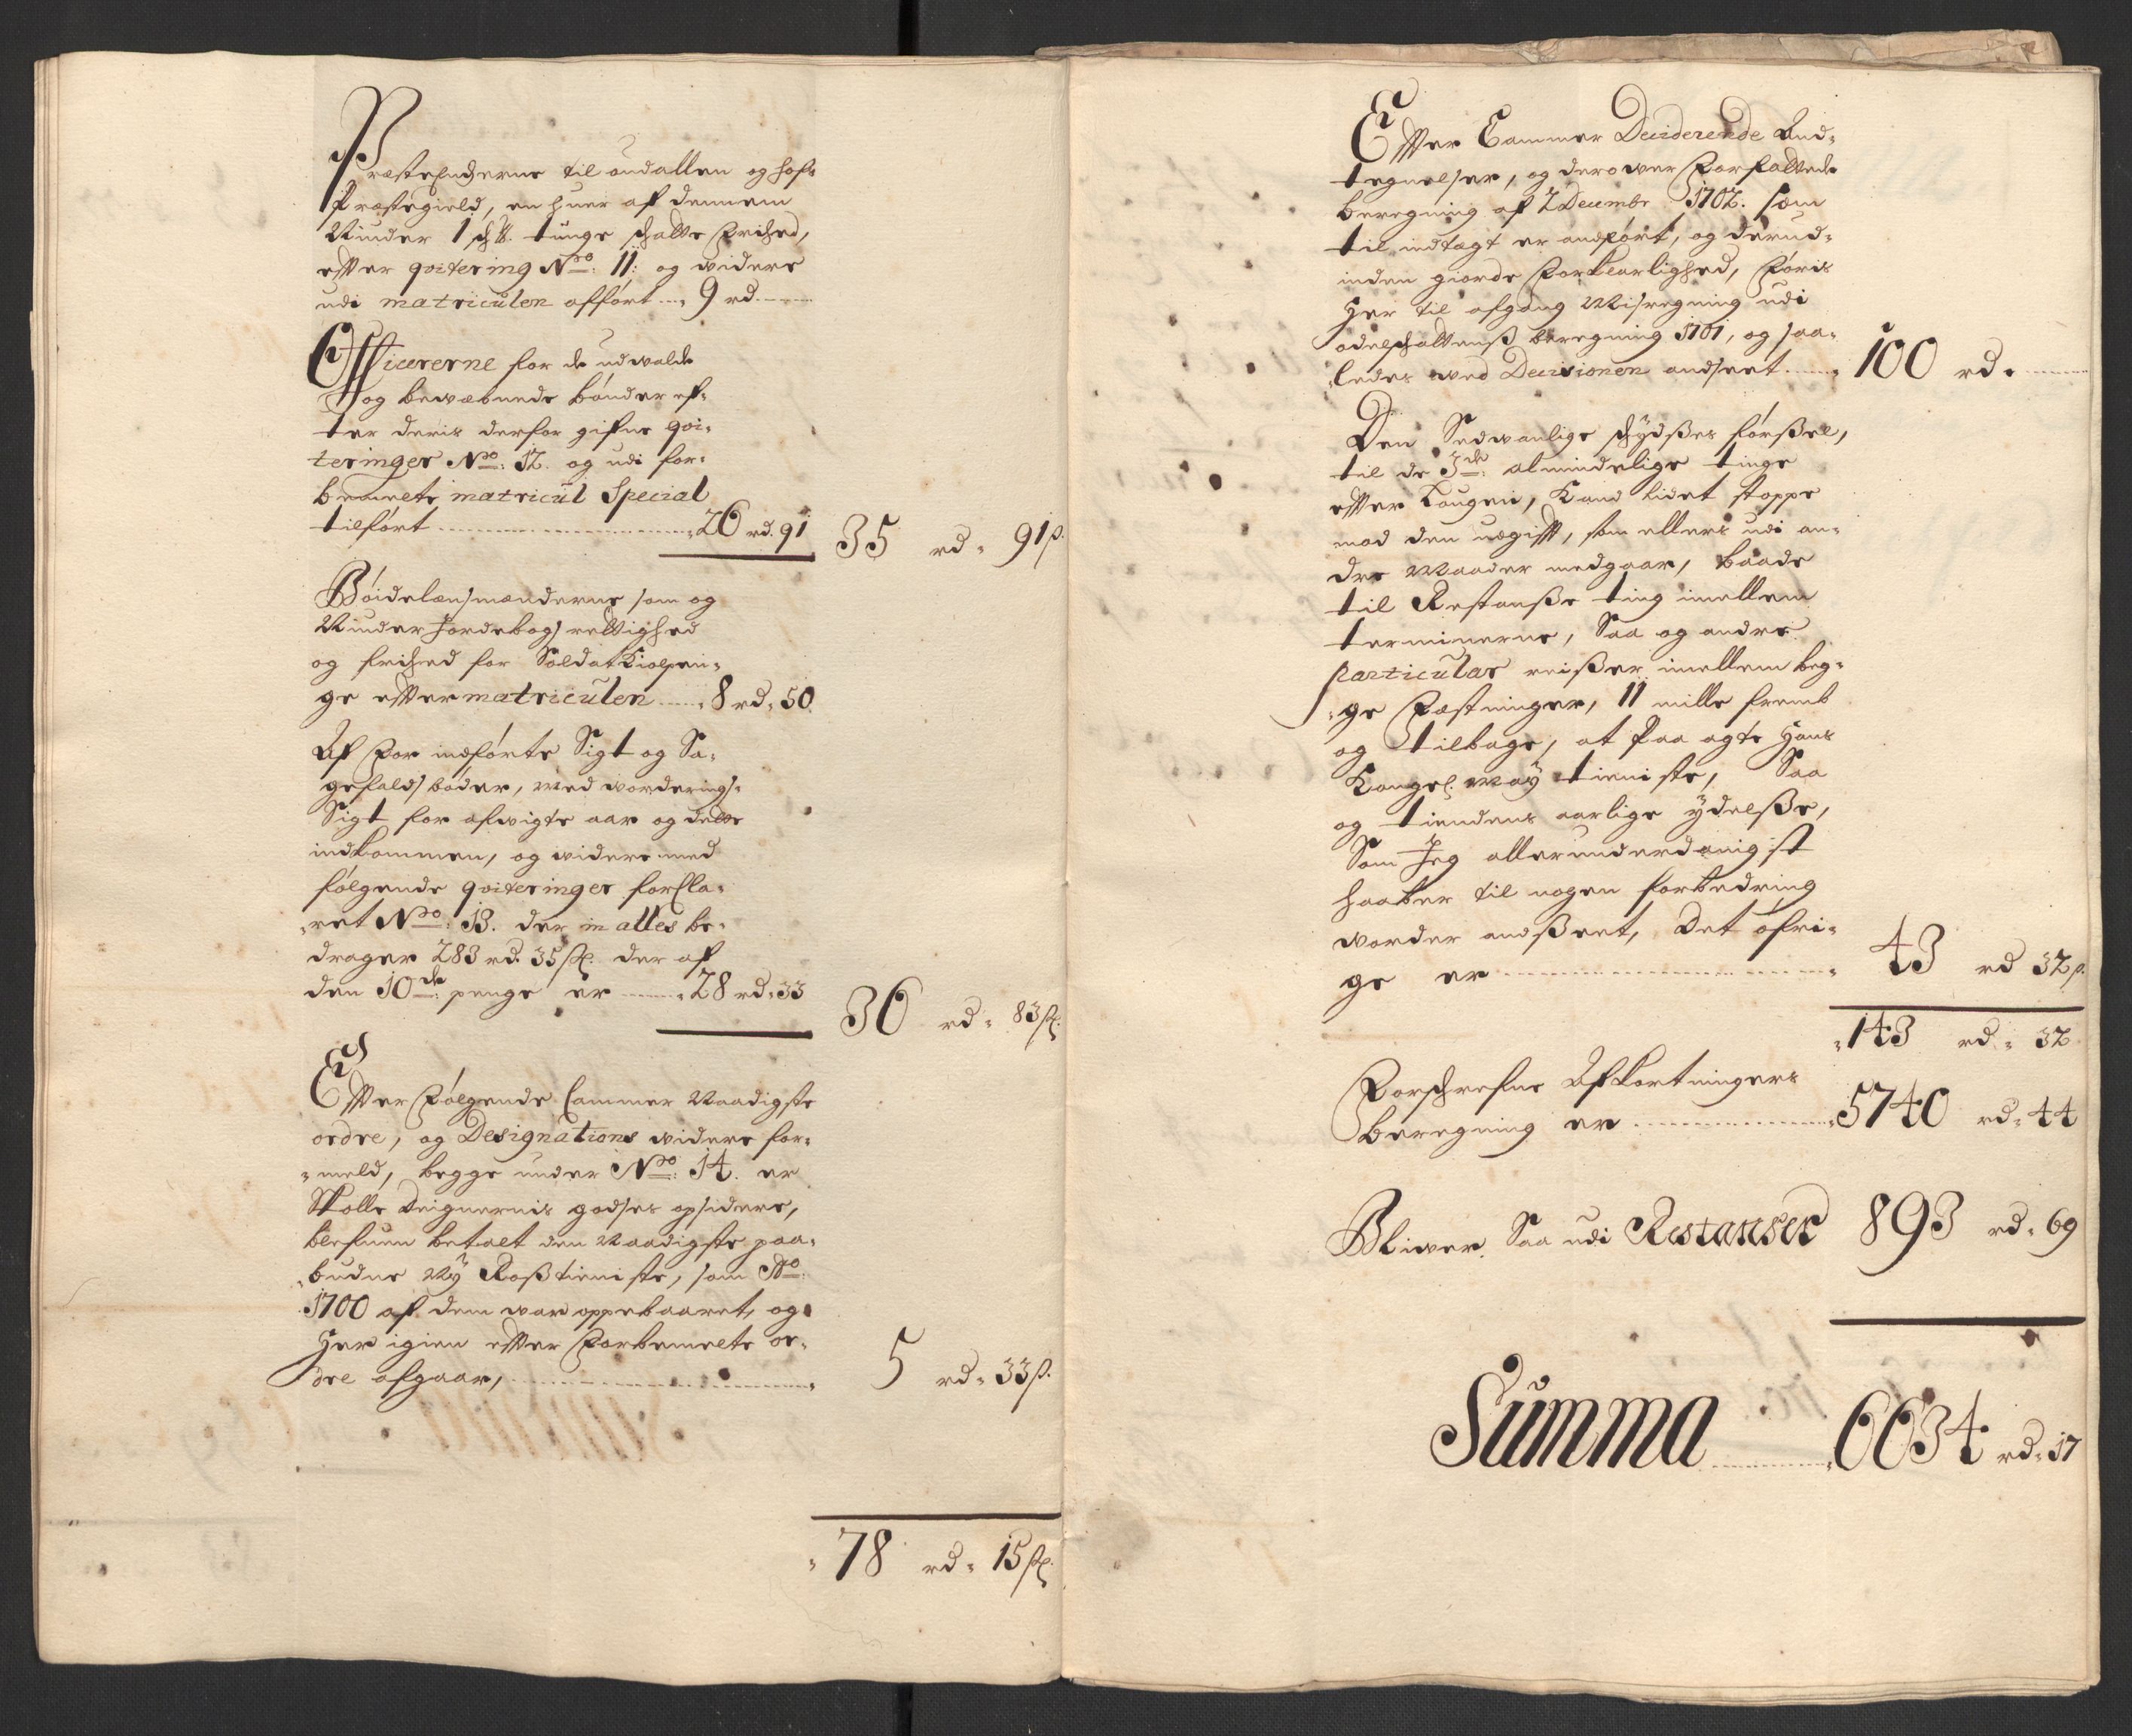 Præsteenckerne til Undallen og Hosᵉ
Præstegield, en huer af dennem
Niuder 1 sch ℔. tunge schatte Frihed,
effter qvitering N⁰: 11: og widere
udi matriculen afført .... 9 rd
Officererne for de udwalde
og bewæbnede bønder ef-
ter deris derfor gifne qvi-
teringer N⁰: 12. og udi for-
bemelte matricul Special
tilført 26 rd. 91
35 rd 91 s.
Bøidelænsmænderne som og
Niuder Jordebogs rettighed
og frihed for Soldat Kiolpen-
ge effter matriculen 8 rd: 50
Af For indførte Sigt og Sa-
gefalds bøder, med worderings-
Sigt for afwigte aar og dette
indkommen, og widere med
følgende qviteringer forkla-
ret N⁰: 13. der in alles be-
drager 283 rd 35 s. der af
den 10de penge er 28 rd: 33
36 rd 83 s.
Effter Følgende Cammer Naadigste
ordre, og Designations widere for-
meld, begge under N⁰: 14. er
Skolle Deignernis godses opsidere,
blefuen betalt den Naadigste paa-
budne Ny Rostieniste, som A⁰:
1700 af dem war oppebaaret, og
Her igien effter Forbemelte or-
dre afgaar, 5 rd: 33 s.
78 rd 15 s.
Effter Cammer Deciderende And-
tegnelser, og derower Forfattede
beregning af 2 Decembr 1702. som
til indtægt er andført, og derud-
inden giorde Forklarlighed, Føris
Her til afgang Misregning udi
odelschattens beregning 1701, og saa-
ledes wed Decisionen andseet 100 rd.
Den Sedwanlige schydses førsel,
til de 3de: almindelige tinge
effter Lougen, Kand lidet stoppe
mod den udgifft, som ellers udi an-
dre Maader medgaar, baade
til Restantze ting imellem
terminerne, Saa og andre
particular reiser imellem beg-
ge Fæstninger, 11 mille fremb
og tilbage, at Paa agte Hans
Kongel. May tieniste, Saa
og tiendens aarlige ydelse,
Som Jeg allerunderdanigst
haaber til nogen forbedring
worder andseet, Det øfri-
ge er 43 rd 32 s.
143 rd: 32
Forschrefne Afkortningers
beregning er 5740 rd: 44
Bliwer Saa udi Restanser 893 rd: 69
Summa 6634 rd: 17